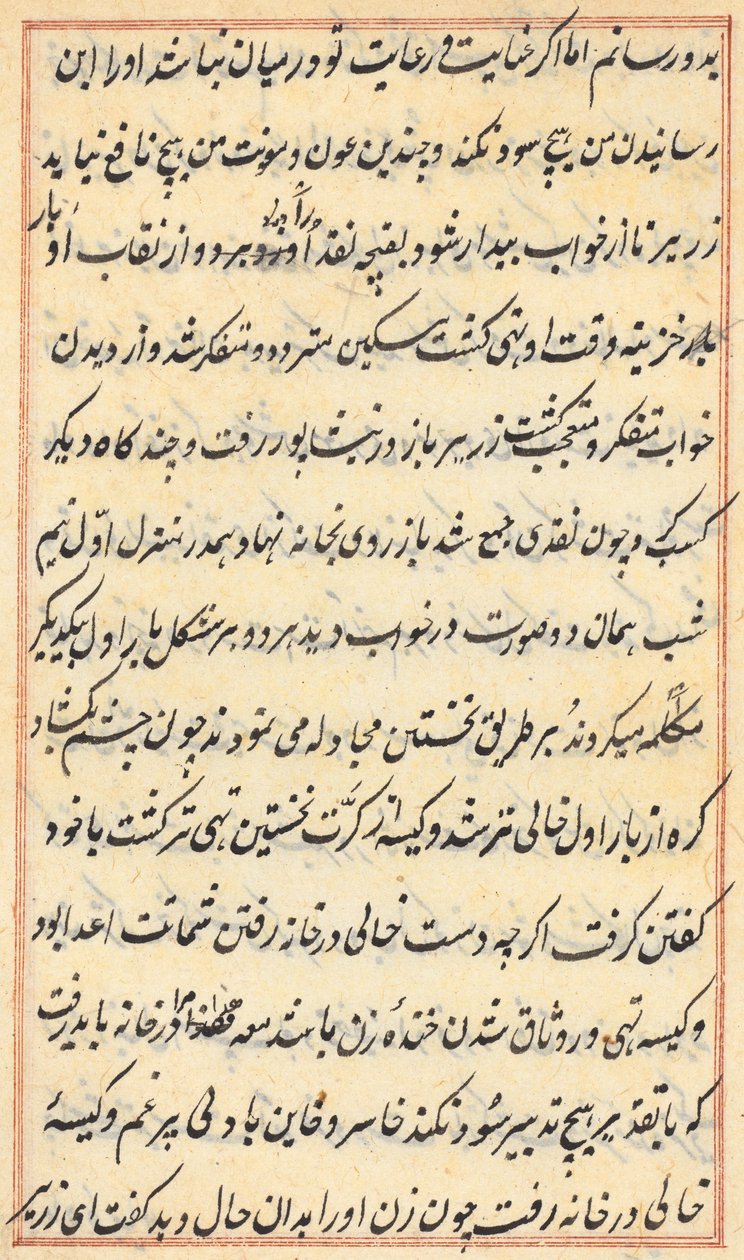 بدو رسانم اما اکر عنایت و رعایت تو درمیان نباشد اورا این
رسانیدن من هیچ سود نکند و چندین عون و مونت من هیچ نافع نیاید
زریر تا از خواب بیدار شود بقچه نقد او را دزد برد و از نقاب او بار
خزینه وقت او تهی کشت مسکین متردد و متفکر شد و از دیدن
خواب متفکر و متعجب کشت زریر باز در نیشاپور رفت و چند کاه دیکر
کسب کرد و چون نقدی جمع شد باز روی بخانه نهاد همدر منزل اوّل نیم
شب همان دو صورت در خواب دید هر دو بر شکل بار اول بیکدیکر
مکالمه میکردند بر طریق نخستین مجادله می نمودند چون چشم بکشاد
کره از بار اول خالی تر شد و کیسه از کرّت نخستین تهی تر کشت با خود
کفتن کرفت اکرچه دست خالی در خانه رفتن شماتت اعدا بود
و کیسه تهی در وثاق شدن خندهٔ زن باشد مرا در خانه باید رفت
که با تقدیر هیچ تدبیر سود نکند خاسر و خاین با دلی پر غم و کیسهٔ
خالی در خانه رفت چون زن او را بدان حال دید کفت ای زریر